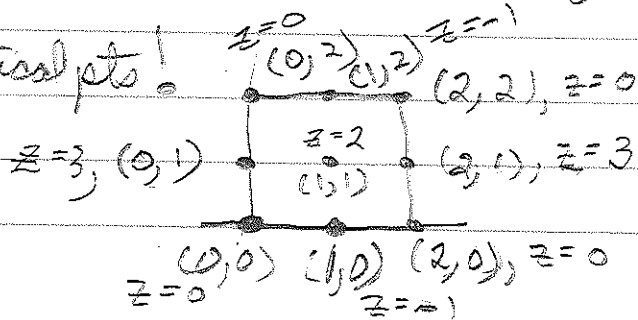 z=0 z=-1
pts! (0,2) (1,2) (2,2), z=0
z=3, (0,1) z=2 (2,1), z=3
(1,1)
(0,0) (1,0) (2,0), z=0
z=0 z=-1